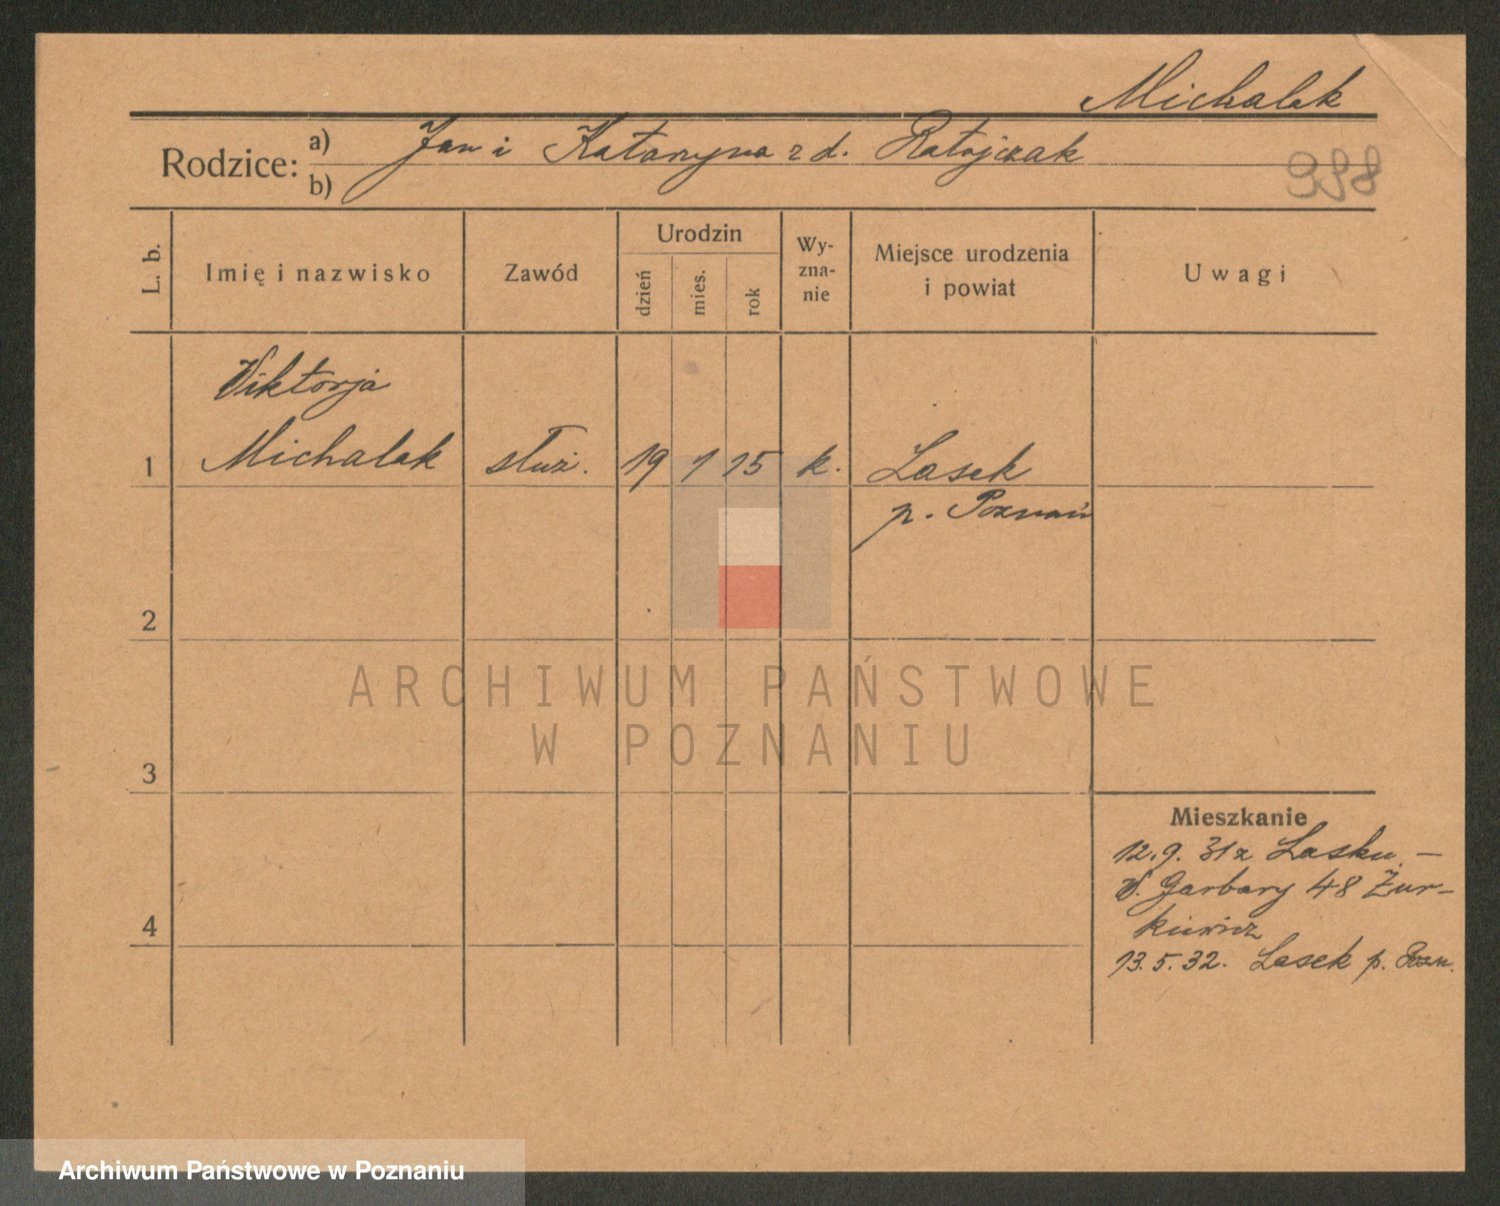 Michalak
Rodzice: a) Jan i Katarzyna z d. Ratajczak
b)
998
L. b.
Imię i nazwisko
Zawód
Urodzin
dzień
mies.
rok
Wy-
zna-
nie
Miejsce urodzenia
i powiat
Uwagi
Wiktorja
1 Michalak służ. 19 1 15 k. Lasek
p. Poznań
2
ARCHIWUM PAŃSTWOWE
W POZNANIU
3
Mieszkanie
12.9. 31 z Lasku. –
W. Garbary 48 Żur-
kiewicz
4
13.5.32. Lasek p. Pozn.
Archiwum Państwowe w Poznaniu